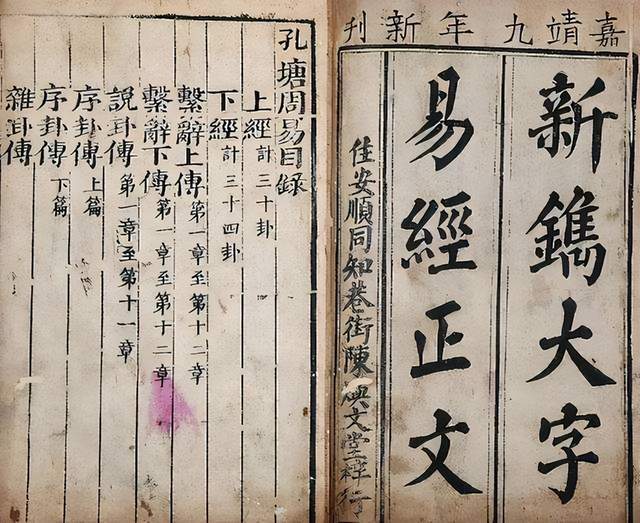 嘉靖九年新刊
新鐫大字
易經正文
安順同知巷街陳文堂梓行
孔塘周易目錄
上經 計三十卦
下經 計三十四卦
繫辭上傳 第一章至第十二章
繫辭下傳 第一章至第十二章
說卦傳 第一章至第十一章
序卦傳 上篇
序卦傳 下篇
雜卦傳